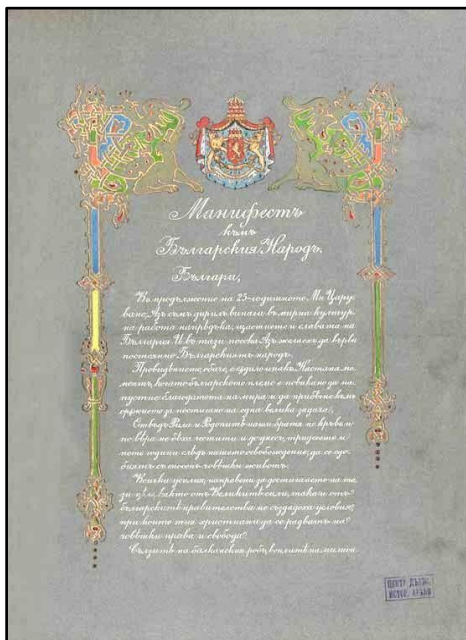 Манифестъ
къмъ
Българския Народъ.
Българи,
Въ продължение на 25-годишното Ми Цару-
ване, Азъ съмъ дирилъ винаги въ мирна култур-
на работа напрѣдъка, щастието и славата на
България. И въ тази посока Азъ желаехъ да върви
постоянно Българскиятъ народъ.
Провидѣнието, обаче, е сѫдило инакъ. Настана мо-
ментъ, когато българското племе е повикано да
благодатьта на мира и да прибѣгне къмъ
орѫжието за постигане на една велика задача.
Отвъдъ Рила и Родопитѣ наши братя по кръвь и
по вѣра не бѣха честити и до днесь, тридесеть и
петь години слѣдъ нашето освобождение, да се сдо-
биятъ съ човѣшки животъ.
Всички усилия, направени за достигането на та-
зи цѣль, както отъ Великитѣ сили, така и отъ
българскитѣ правителства не създадоха условия,
при които тия християни да се радватъ на
човѣшки права и свобода.
Сълзитѣ на балканския робъ,
ЦЕНТР. ДЪРЖ.
ИСТОР. АРХИВ